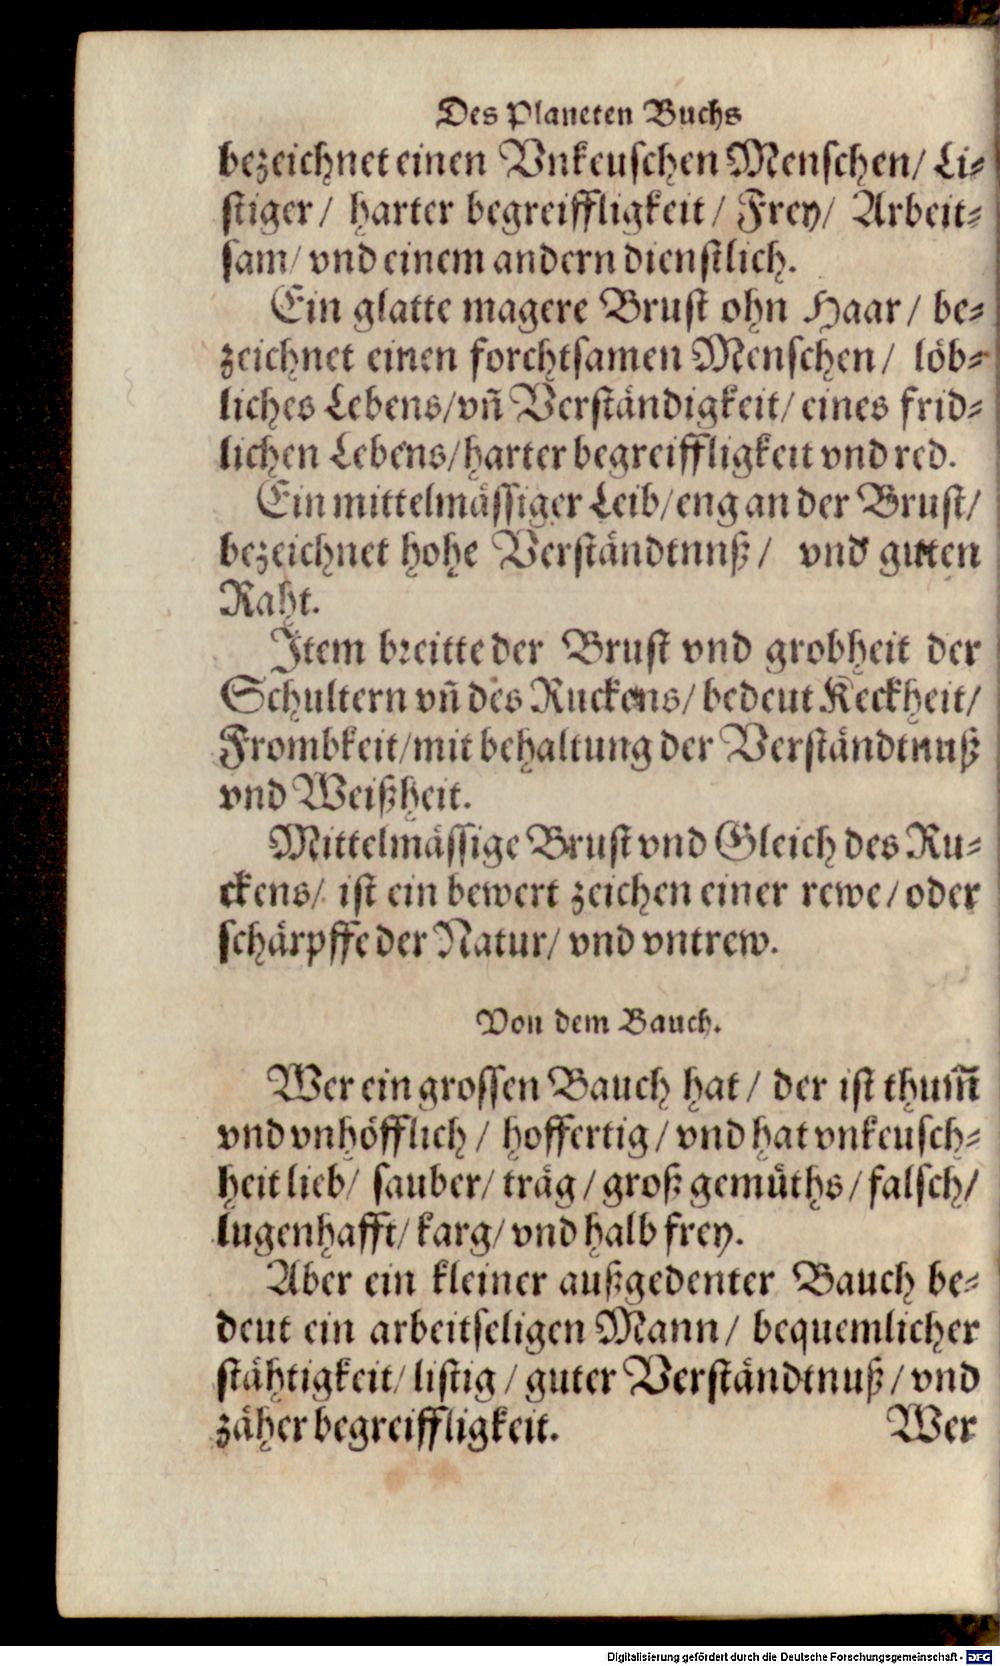 Des Planeten Buchs
bezeichnet einen Vnkeuschen Menschen/ Li-
stiger/ harter begreiffligkeit/ Frey/ Arbeit-
sam/ vnd einem andern dienstlich.
Ein glatte magere Brust ohn Haar/ be-
zeichnet einen forchtsamen Menschen/ löb-
liches Lebens/ vñ Verständigkeit/ eines frid-
lichen Lebens/ harter begreiffligkeit vnd red.
Ein mittelmässiger Leib/ eng an der Brust/
bezeichnet hohe Verständtnuß/ vnd guten
Raht.
Item breitte der Brust vnd grobheit der
Schultern vñ des Ruckens/ bedeut Keckheit/
Frombkeit/ mit behaltung der Verständtnuß
vnd Weißheit.
Mittelmässige Brust vnd Gleich des Ru-
ckens/ ist ein bewert zeichen einer rewe/ oder
schärpffe der Natur/ vnd vntrew.
Von dem Bauch.
Wer ein grossen Bauch hat/ der ist thum̃
vnd vnhöfflich/ hoffertig/ vnd hat vnkeusch-
heit lieb/ sauber/ träg/ groß gemüths/ falsch/
lugenhafft/ karg/ vnd halb frey.
Aber ein kleiner außgedenter Bauch be-
deut ein arbeitseligen Mann/ bequemlicher
stähtigkeit/ listig/ guter Verständtnuß/ vnd
zäher begreiffligkeit. Wer
Digitalisierung gefördert durch die Deutsche Forschungsgemeinschaft - DFG